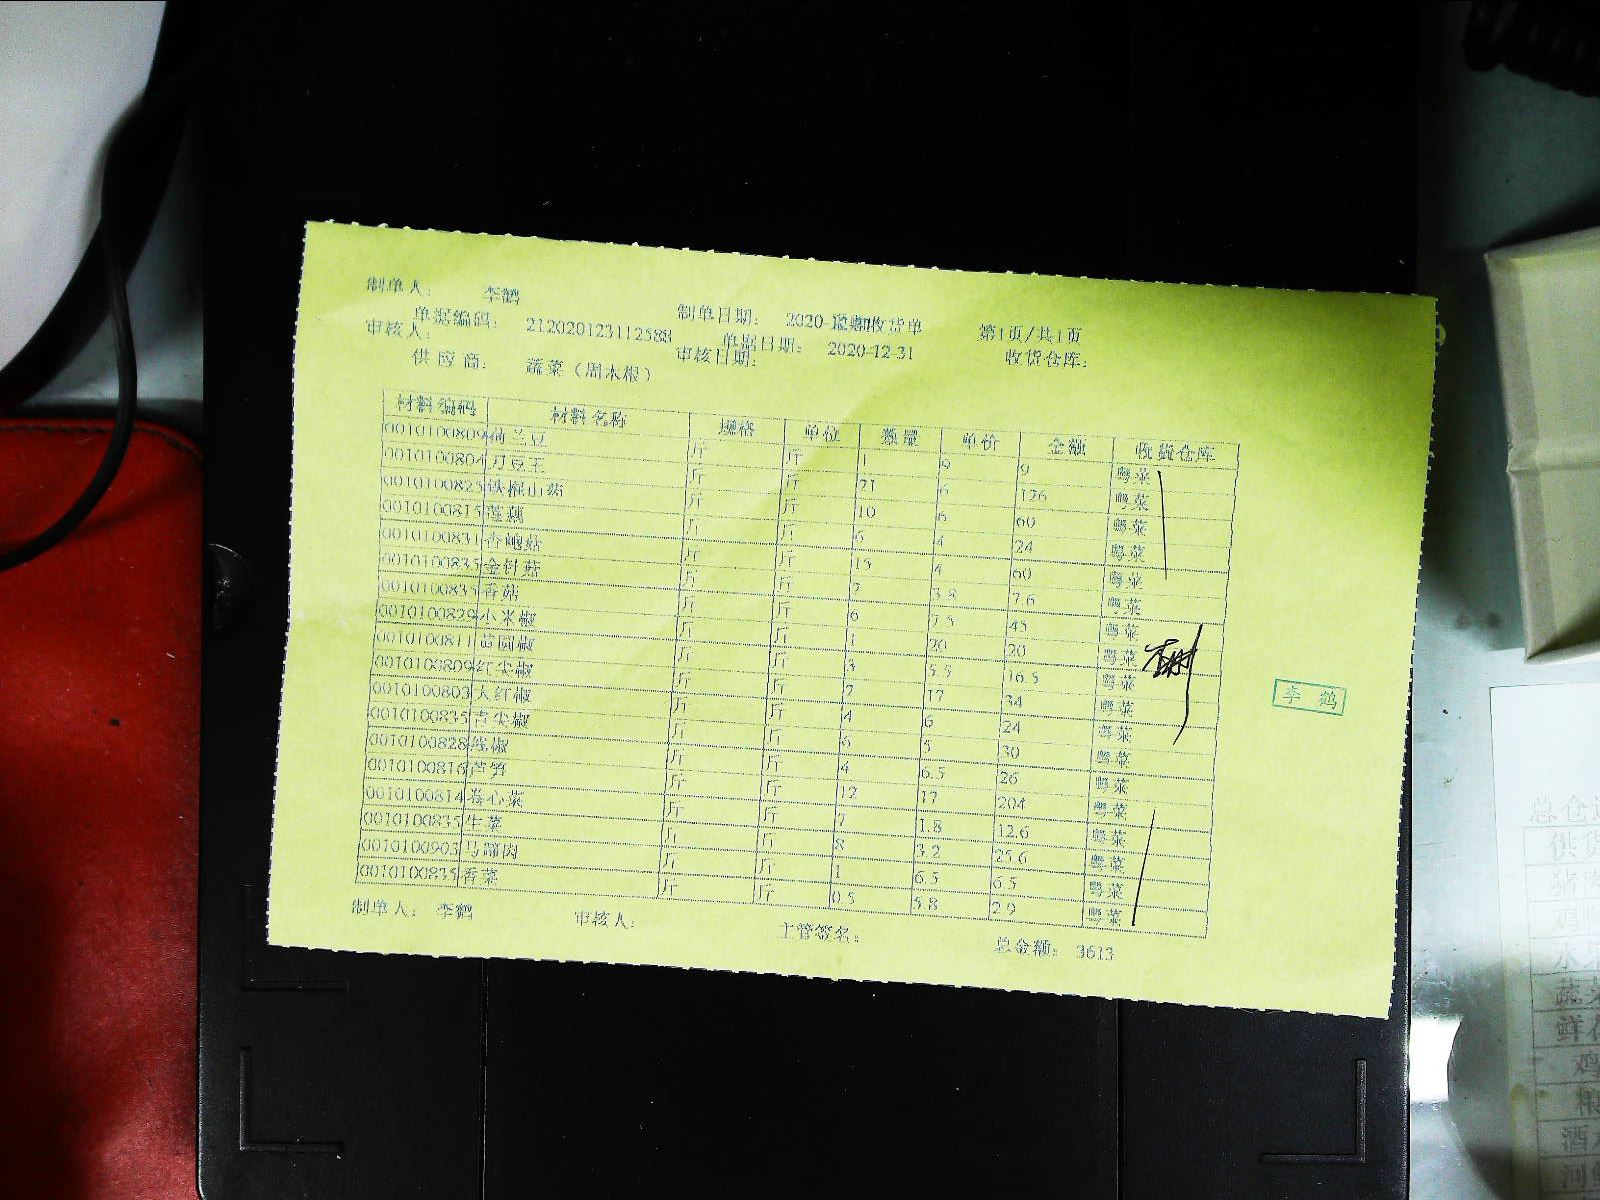 制单人： 李鹤
制单日期： 2020- 收货单
单据编码： 212020123112588 单据日期： 2020-12-31 第1页/共1页
审核人： 审核日期： 收货仓库：
供应商： 蔬菜（周木根）
材料编码 材料名称 规格 单位 数量 单价 金额 收货仓库
0010100809 荷兰豆 斤 斤 1 9 9 粤菜
0010100804 刀豆王 斤 斤 21 6 126 粤菜
0010100823 铁棍山药 斤 斤 10 6 60 粤菜
0010100815 莲藕 斤 斤 6 4 24 粤菜
0010100831 杏鲍菇 斤 斤 15 4 60 粤菜
0010100835 金针菇 斤 斤 2 3.8 7.6 粤菜
0010100835 香菇 斤 斤 6 7.5 45 粤菜
0010100829 小米椒 斤 斤 1 20 20 粤菜
0010100811 圆椒 斤 斤 3 5.5 16.5 粤菜
0010100809 红尖椒 斤 斤 2 17 34 粤菜
0010100803 大红椒 斤 斤 4 6 24 粤菜
0010100835 青尖椒 斤 斤 6 5 30 粤菜
0010100828 线椒 斤 斤 4 6.5 26 粤菜
0010100816 芦笋 斤 斤 12 17 204 粤菜
0010100814 卷心菜 斤 斤 7 1.8 12.6 粤菜
0010100835 生菜 斤 斤 8 3.2 25.6 粤菜
0010100903 马蹄肉 斤 斤 1 6.5 6.5 粤菜
0010100835 香菜 斤 斤 0.5 5.8 2.9 粤菜
制单人： 李鹤 审核人： 主管签名： 总金额： 3613
李鹤
总仓
供货
猪肉
水果
蔬菜
鲜
鸡
酒水
河鲜